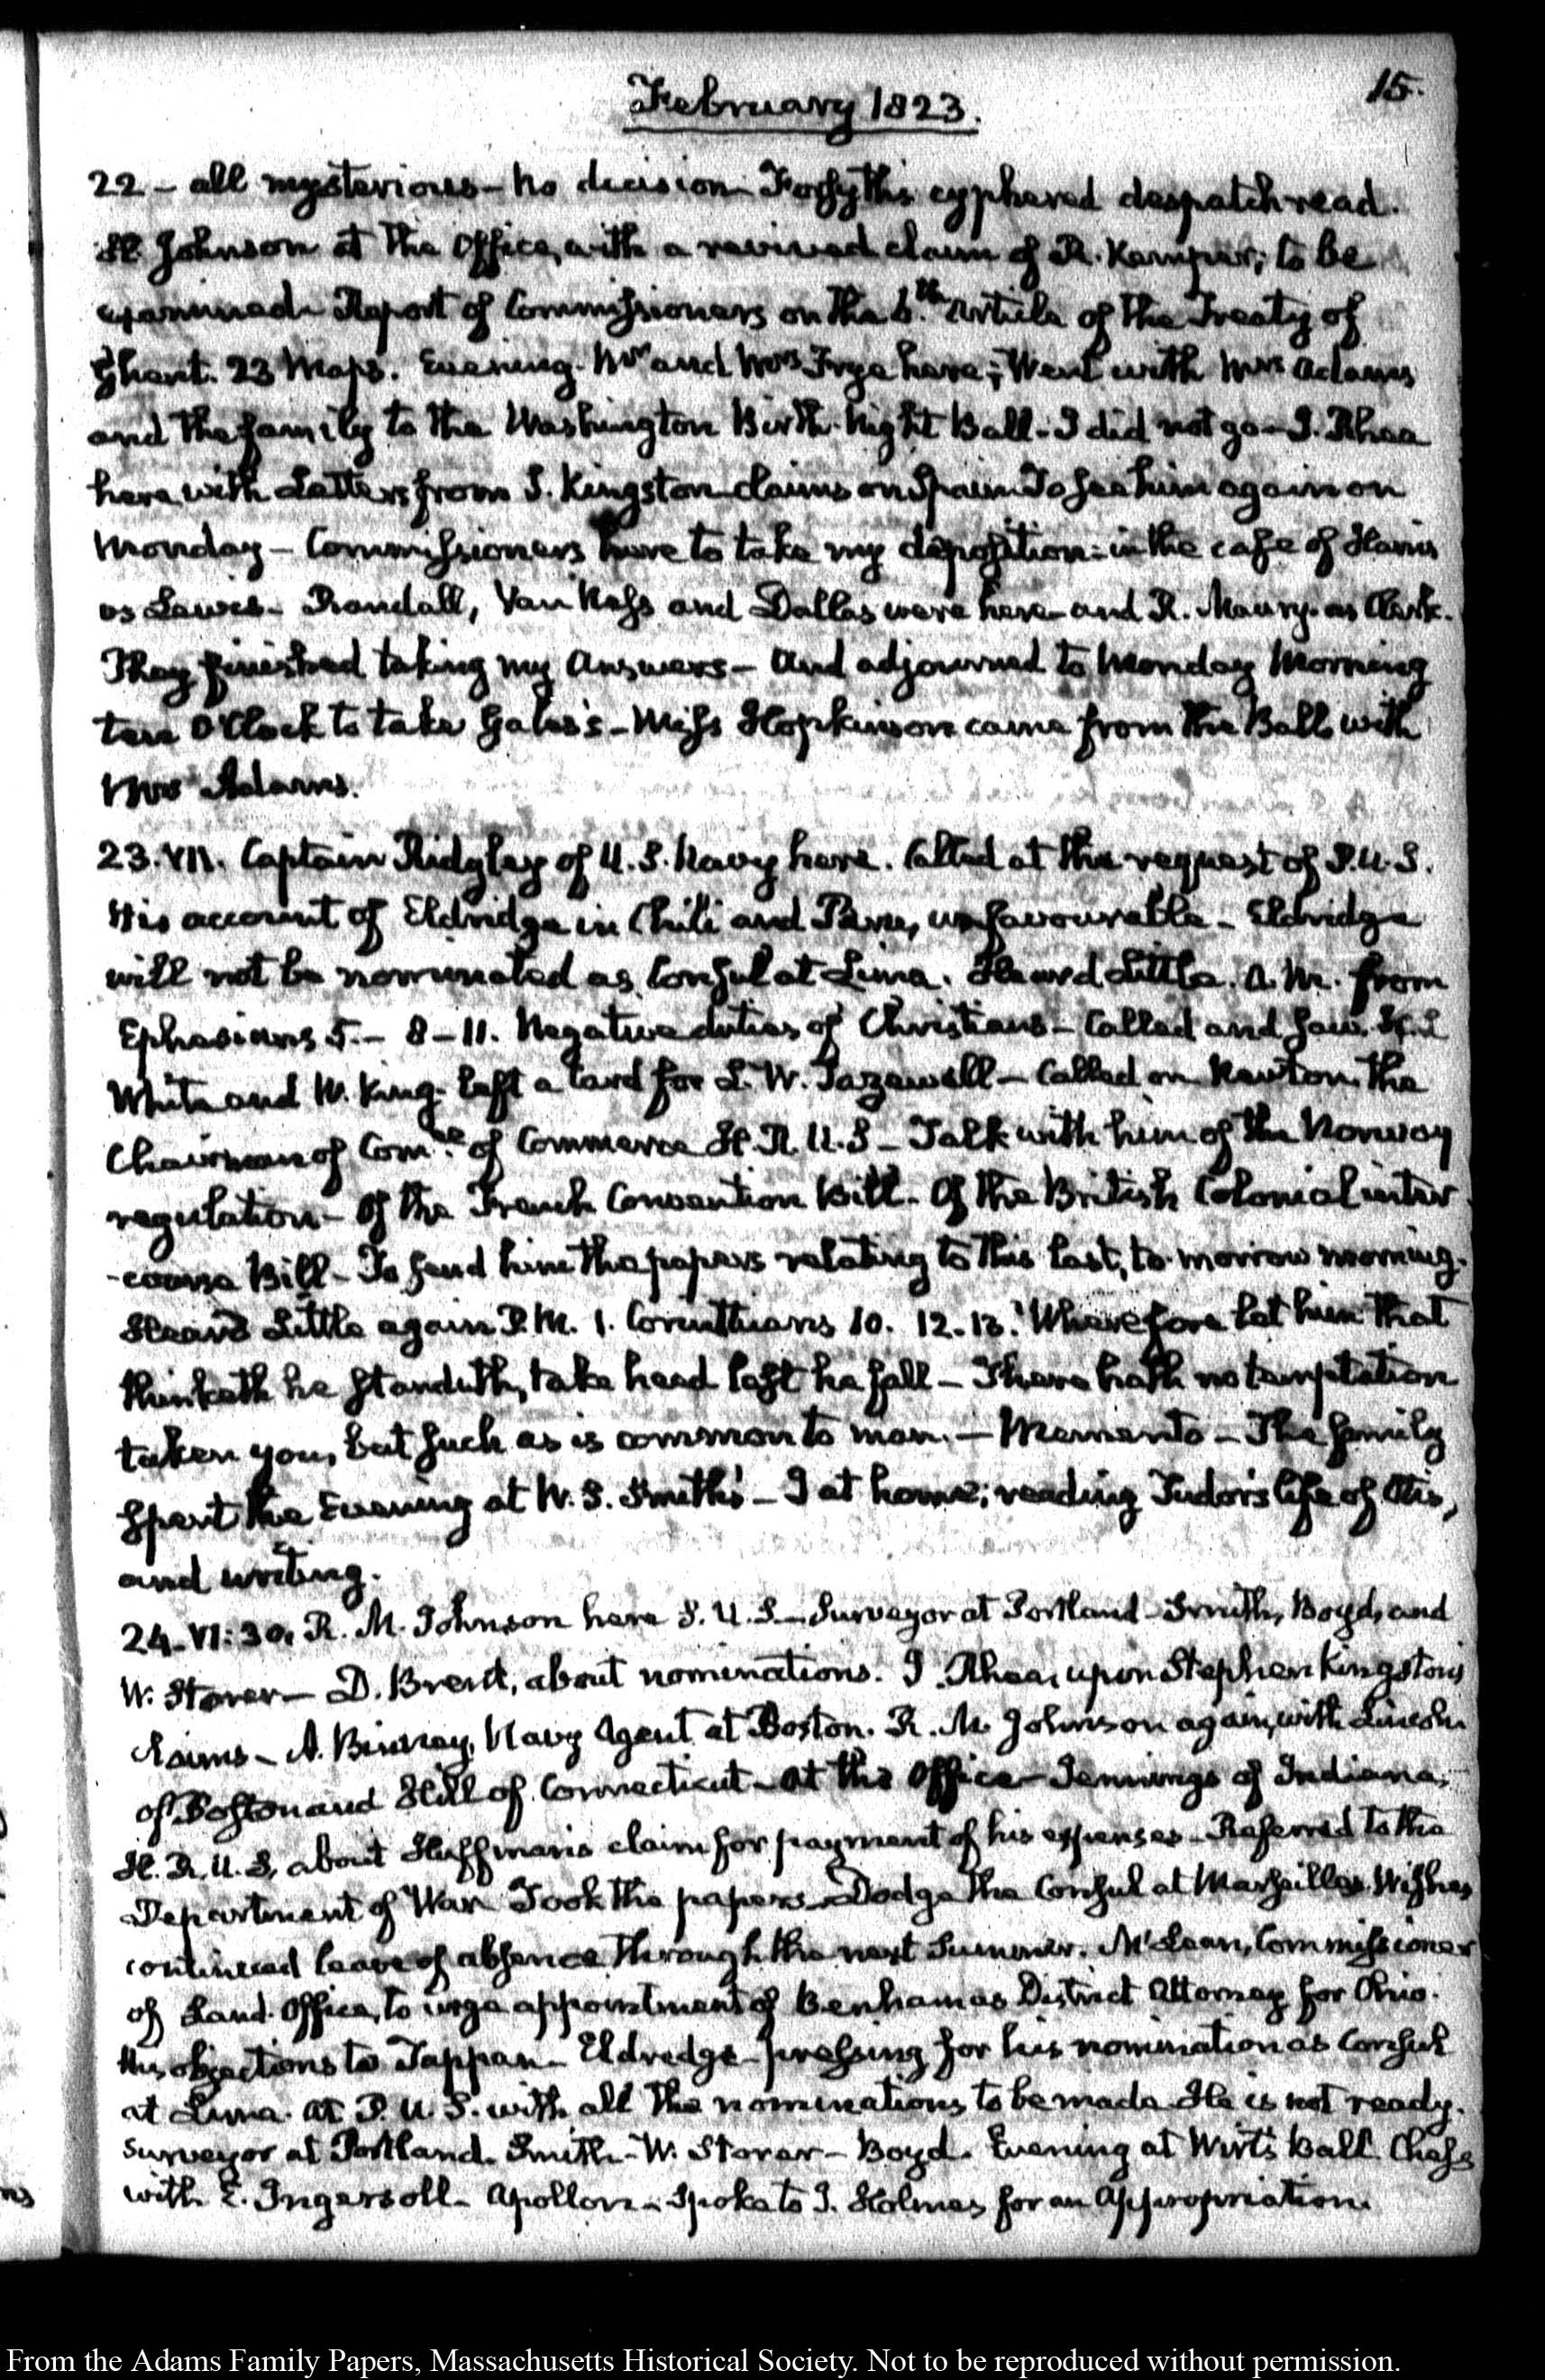 15.
February 1823.
22 – all mysterious – No decision – Forsyth's cyphered despatch read.
H. Johnson at the Office, with a revived claim of R. Kemper; to be
examined – Report of Commissioners on the 6.th Article of the Treaty of
Ghent. 23 Maps. Evening. Mr and Mrs Frye here; Went with Mrs Adams
and the family to the Washington Birth-Night Ball – I did not go – J. Rhea
here with Letters from S. Kingston claims on Spain To see him again on
Monday – Commissioners here to take my deposition – in the case of Harris
vs Lewis – Randall, Van Ness and Dallas were here – and R. Maury as Clerk.
They finished taking my Answers – And adjourned to Monday Morning
ten O'Clock to take Gales's – Miss Hopkinson came from the Ball with
Mrs Adams.
23. VII. Captain Ridgley of U. S. Navy here. Called at the request of P. U. S.
His account of Eldridge in Chili and Peru, unfavourable – Eldridge
will not be nominated as Consul at Lima. Heard Little. A. M. from
Ephesians 5. – 8 – 11. Negative duties of Christians – Called and saw H. L
White and W. King – left a Card for L. W. Tazewell – Called on Newton the
Chairman of Com.ee of Commerce H. R. U. S – Talk with him of the Norway
regulation – Of the French Convention Bill – Of the British Colonial inter
-course Bill – To send him the papers relating to this last, to-morrow morning.
Heard Little again P. M. 1. Corinthians 10. 12. 13. Wherefore let him that
thinketh he standeth, take heed lest he fall – There hath no temptation
taken you, but such as is common to man. – Memento – The family
spent the Evening at W. S. Smith's – I at home; reading Tudor's life of Otis,
and writing.
24. VI: 30. R. M. Johnson here S. U. S – Surveyor at Portland – Smith, Boyd, and
W. Storer – D. Brent, about nominations. J. Rhea, upon Stephen Kingston's
claims – A. Binney, Navy Agent at Boston. R. M. Johnson again, with Lincoln
of Boston and Hill of Connecticut – At the Office – Jennings of Indiana,
H. R. U. S, about Huffman's claim for payment of his expenses – Referred to the
Department of War Took the papers – Dodge the Consul at Marseilles. Wishes
continued leave of absence through the next Summer. McLean, Commissioner
of Land-Office, to urge appointment of Benham as District Attorney for Ohio.
His objections to Tappan – Eldredge – pressing for his nomination as Consul
at Lima. At P. U. S. with all the nominations to be made He is not ready.
Surveyor at Portland. Smith – W. Storer – Boyd. Evening at Wirt's Ball. Chess
with E. Ingersoll – Apollon – Spoke to J. Holmes for an Appropriation.
From the Adams Family Papers, Massachusetts Historical Society. Not to be reproduced without permission.